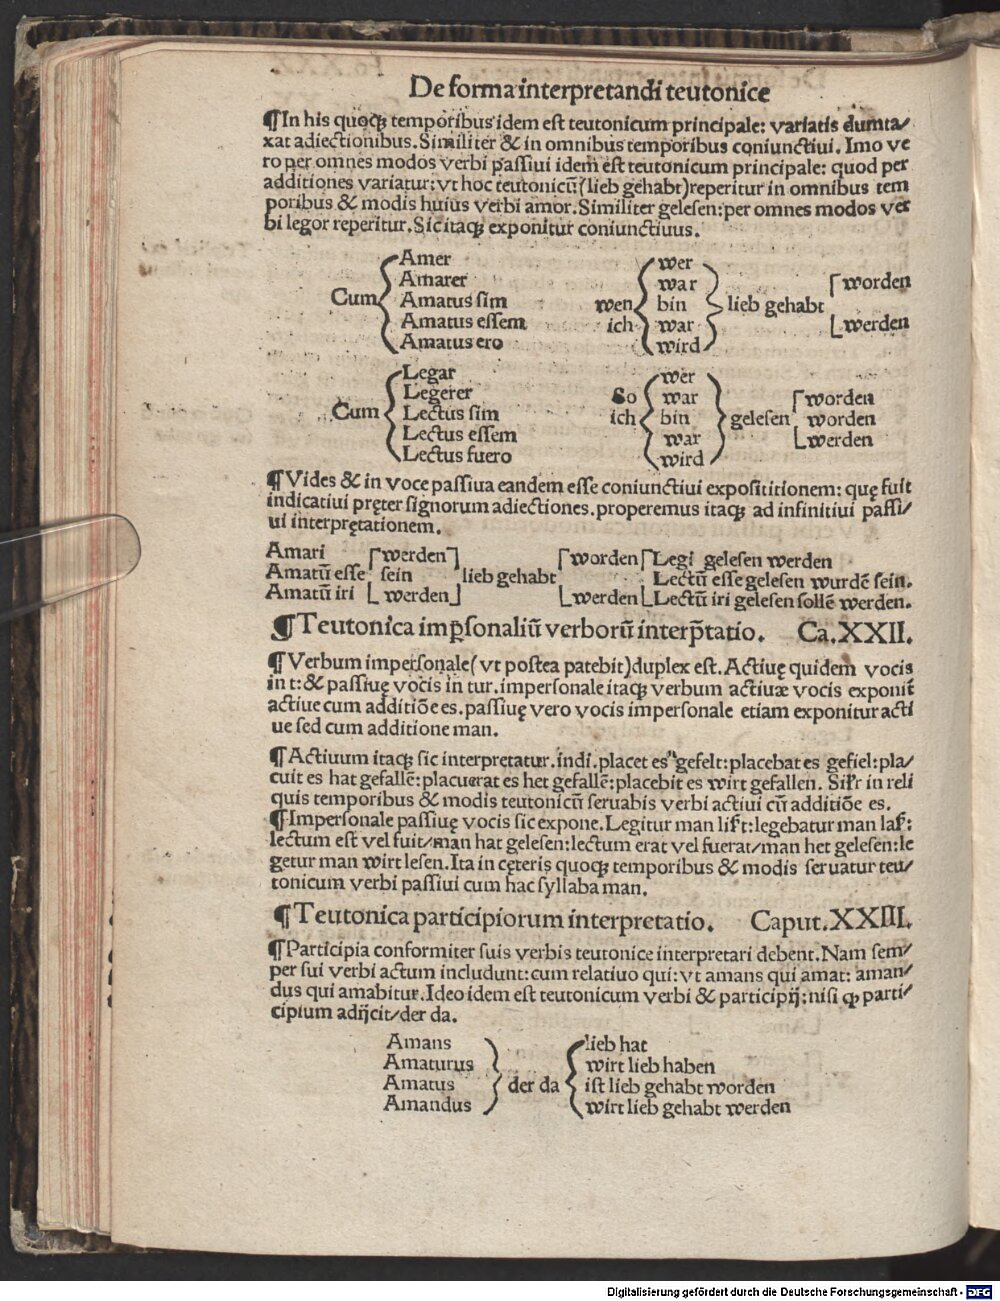 De forma interpretandi teutonice
¶In his quoqꝫ temporibus idem est teutonicum principale: variatis dumta/
xat adiectionibus. Similiter & in omnibus temporibus coniunctiui. Imo ve
ro per omnes modos verbi passiui idem est teutonicum principale: quod per
additiones variatur: vt hoc teutonicū (lieb gehabt) reperitur in omnibus tem
poribus & modis huius verbi amor. Similiter gelesen: per omnes modos ver
bi legor reperitur. Sic itaqꝫ exponitur coniunctiuus.
Amer wer
Amarer war worden
Cum Amatus sim wen bin lieb gehabt
Amatus essem ich war werden
Amatus ero wird
Legar wer
Legerer So war worden
Cum Lectus sim ich bin gelesen worden
Lectus essem war werden
Lectus fuero wird
¶Vides & in voce passiua eandem esse coniunctiui exposititionem: quę fuit
indicatiui pręter signorum adiectiones. properemus itaqꝫ ad infinitiui passi/
ui interpretationem.
Amari werden worden Legi gelesen werden
Amatū esse sein lieb gehabt Lectū esse gelesen wurdē sein.
Amatū iri werden werden Lectū iri gelesen sollē werden.
¶Teutonica imꝑsonaliū verborū interp̄tatio. Ca. XXII.
¶Verbum impersonale (vt postea patebit) duplex est. Actiuę quidem vocis
in t: & passiuę vocis in tur. impersonale itaqꝫ verbum actiuæ vocis exponit̄
actiue cum additiōe es. passiuę vero vocis impersonale etiam exponitur acti
ue sed cum additione man.
¶Actiuum itaqꝫ sic interpretatur. indi. placet es gefelt: placebat es gefiel: pla/
cuit es hat gefallē: placuerat es het gefallē: placebit es wirt gefallen. Sil̄r in reli
quis temporibus & modis teutonicū seruabis verbi actiui cū additiōe es.
¶Impersonale passiuę vocis sic expone. Legitur man list: legebatur man las:
lectum est vel fuit/man hat gelesen: lectum erat vel fuerat/man het gelesen: le
getur man wirt lesen. Ita in cęteris quoqꝫ temporibus & modis seruatur teu/
tonicum verbi passiui cum hac syllaba man.
¶Teutonica participiorum interpretatio. Caput. XXIII.
¶Participia conformiter suis verbis teutonice interpretari debent. Nam sem/
per sui verbi actum includunt: cum relatiuo qui: vt amans qui amat: aman/
dus qui amabitur. Ideo idem est teutonicum verbi & participij: nisi ꝙ parti/
cipium adijcit/der da.
Amans lieb hat
Amaturus wirt lieb haben
Amatus der da ist lieb gehabt worden
Amandus wirt lieb gehabt werden
Digitalisierung gefördert durch die Deutsche Forschungsgemeinschaft - DFG